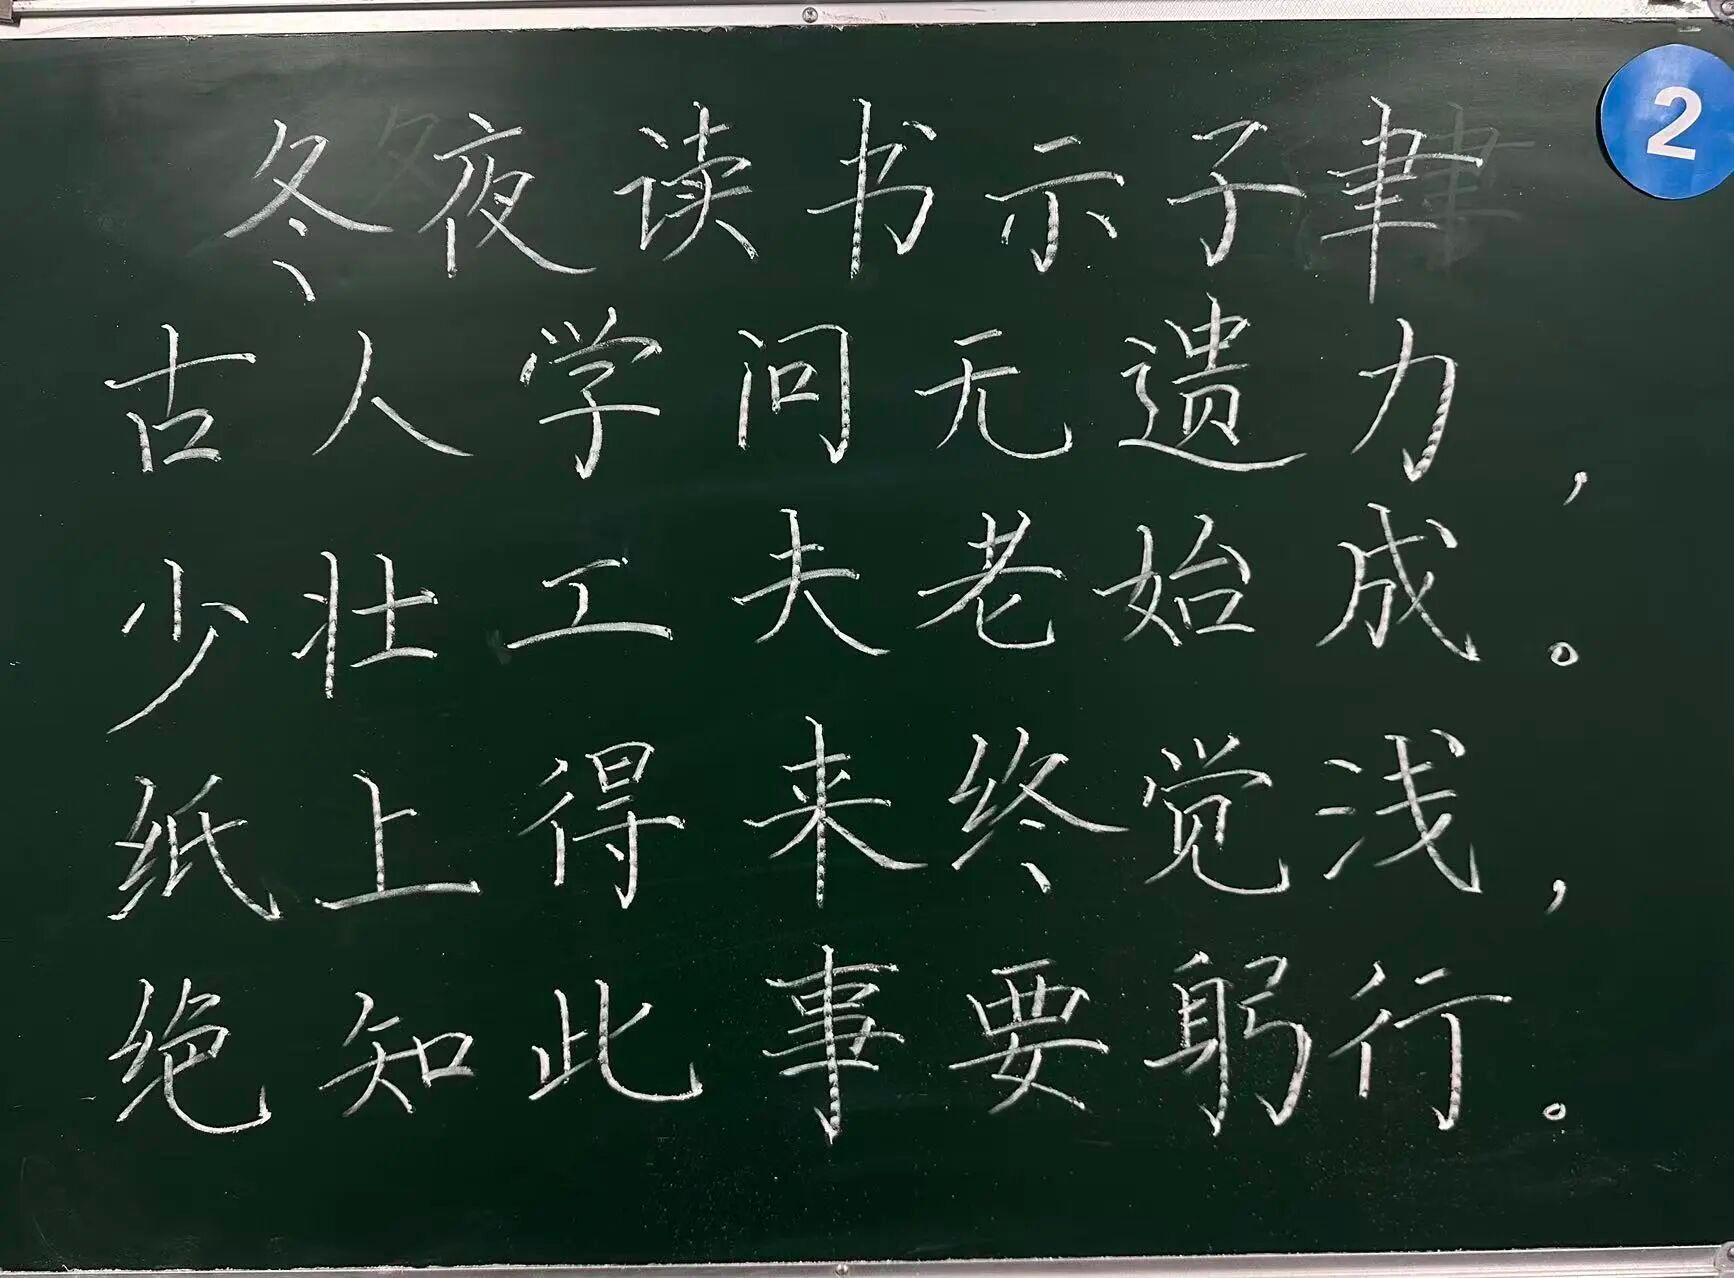 2
冬夜读书示子聿
古人学问无遗力，
少壮工夫老始成。
纸上得来终觉浅，
绝知此事要躬行。